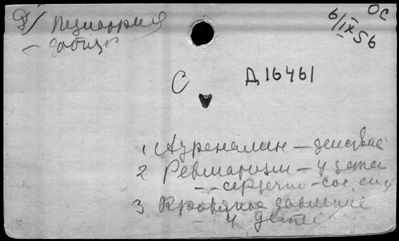 Д/ Педиатрия
ОС
6/IX 56
С
Д16461
1 Адреналин – действие
2 Ревматизм – у детей
– – сердечно – сос.
3 Кровяное давление
– у детей